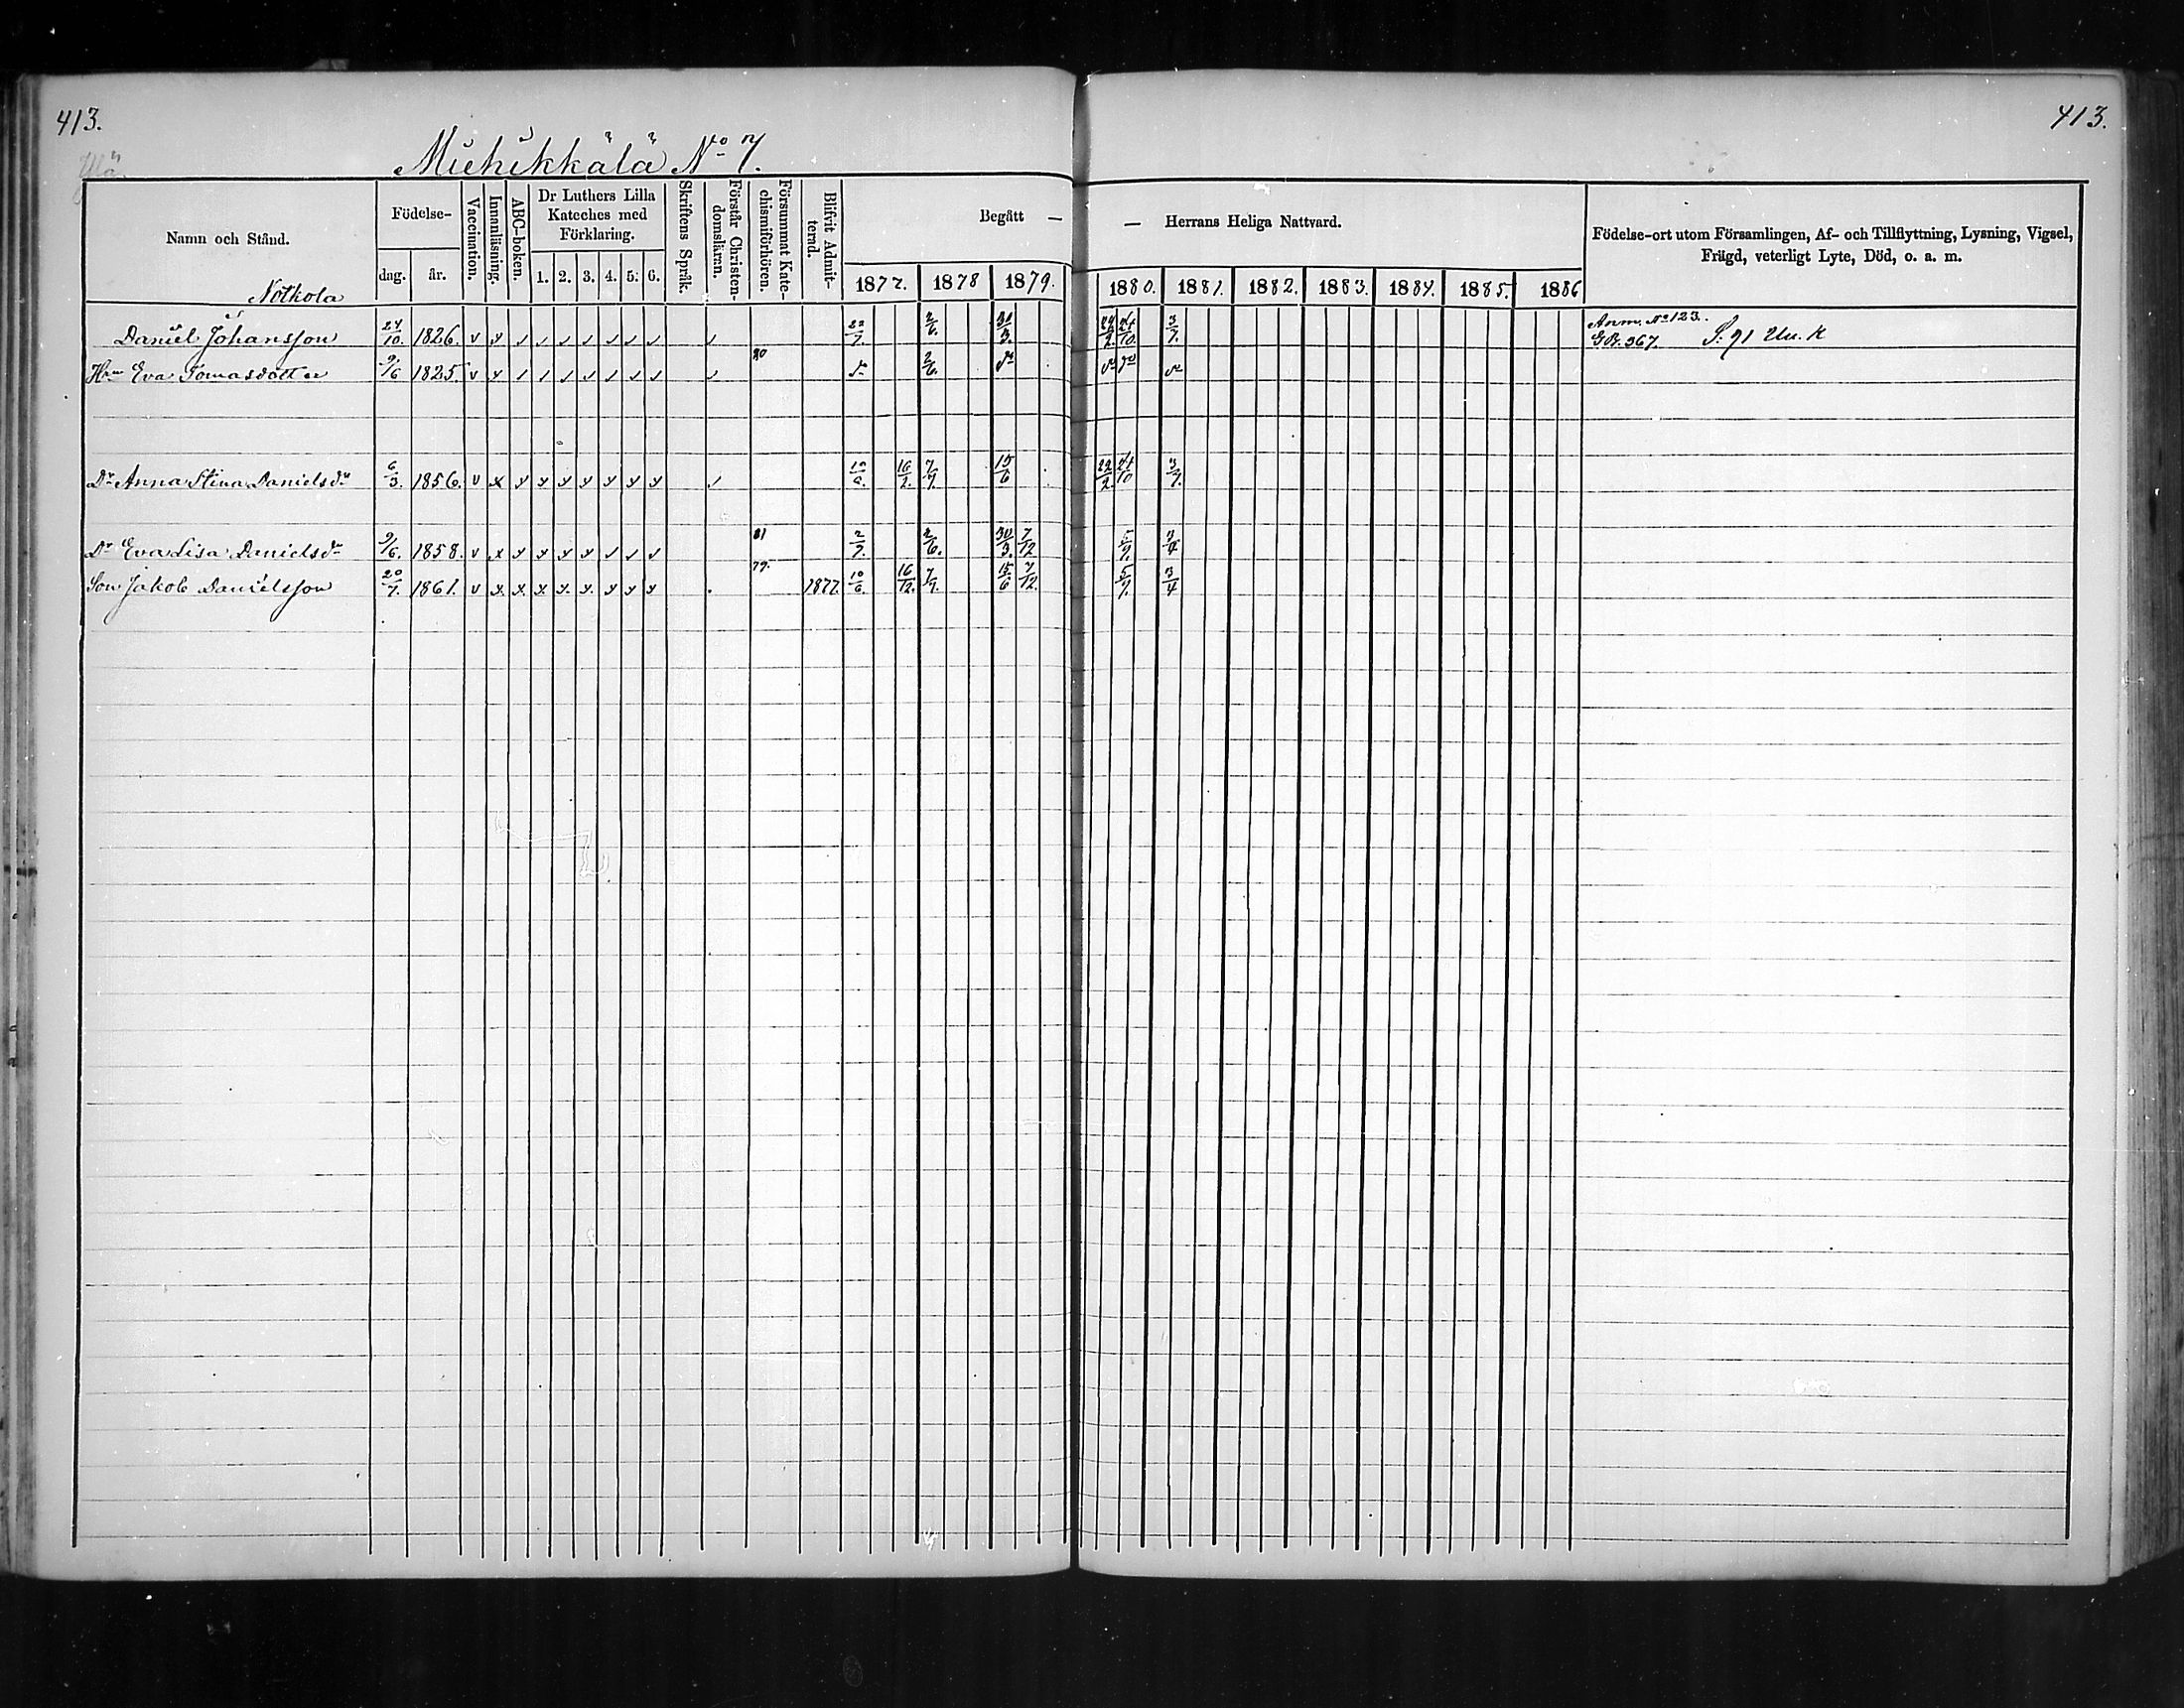 413.
413.
Miehikkälä No 7.
Namn och Stånd.
Födelse-
dag. år.
Vaccination.
Innanläsning.
ABC-boken.
Dr Luthers Lilla
Kateches med
Förklaring.
1. 2. 3. 4. 5. 6.
Skriftens Språk.
Förstår Christen-
domsläran.
Försummat Kate-
chismiförhören.
Blifvit Admit-
terad.
Begått —
— Herrans Heliga Nattvard.
1877. 1878 1879. 1880. 1881. 1882. 1883. 1884. 1885. 1886
Födelse-ort utom Församlingen, Af- och Tillflyttning, Lysning, Vigsel,
Frägd, veterligt Lyte, Död, o. a. m.
Notkola
Daniel Johansson 24/10. 1826. 22/7. 2/6. 30/3. 3/7.
Anm. No 123.
367. S. 91
Hru Eva Tomasdotter 9/6 1825. 80 2/6.
Dr Anna Stina Danielsdr 6/3. 1856. 10/6. 16/12. 7/7. 15/6 22/2. 24/10 3/7.
Dr Eva Lisa Danielsdr 9/6. 1858. 81 2/7. 2/6. 30/3. 7/12 5/7. 3/4
Son Jakob Danielsson 20/7. 1861. 79. 1877. 10/6. 16/12. 7/7. 15/6 7/12. 5/7. 3/4